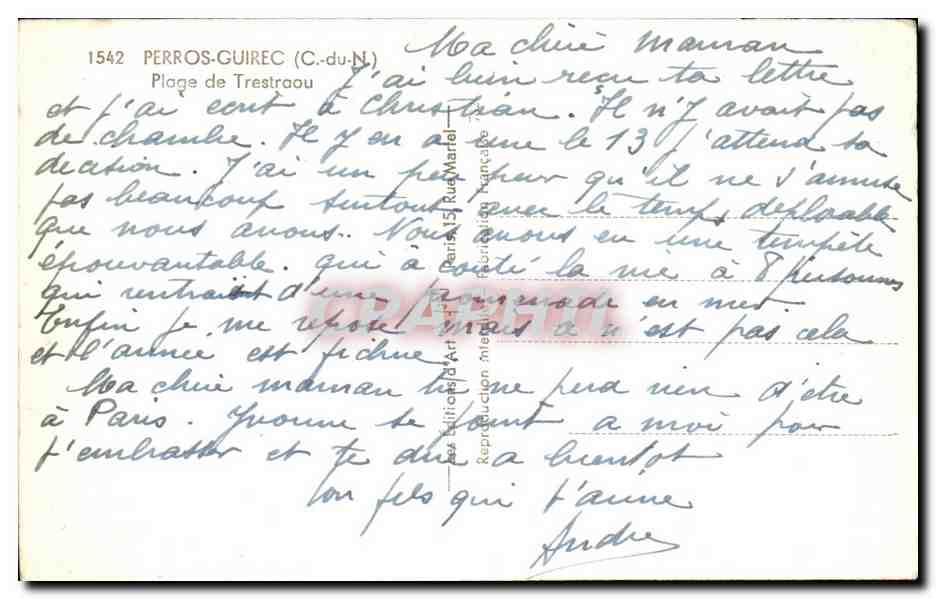 1542 PERROS-GUIREC (C.-du-N.)
Plage de Trestraou
Ma chère maman
J'ai bien reçu ta lettre
et j'ai ecrit à Christian. Il n'y avait pas
de chambre. Il y en a une le 13 j'attend sa
decision. J'ai un peu peur qu'il ne s'amuse
pas beaucoup surtout avec le temps deplorable
que nous avons.. Nous avons eu une tempête
épouvantable. qui à couté la vie à 8 personnes
qui rentrait d'une promenade en mer
Enfin je me repose, mais ce n'est pas cela
et l'année est fichue.
Ma chère maman tu ne perd rien d'etre
à Paris. Yvonne se joint a moi pour
t'embrasser et te dire a bientot
ton fils qui t'aime
André
Les Editions d'Art Paris, 15, Rue Martel
Reproduction Interdite Fabrication Française
CPAPHIL